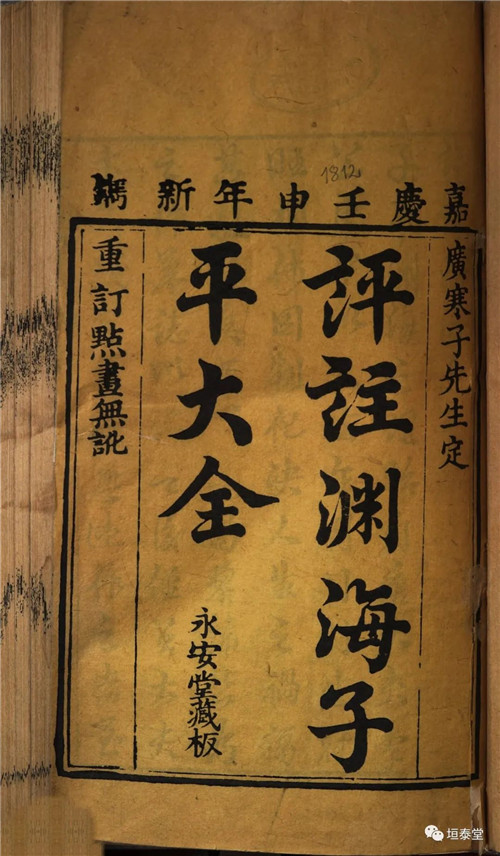 1812
嘉慶壬申年新鐫
廣寒子先生定
評註渊海子
平大全
永安堂藏板
重訂點畫無訛
垣泰堂